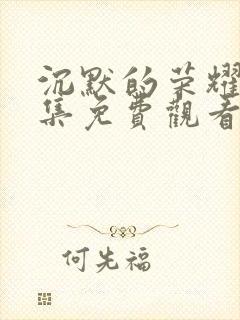 沉默的荣耀
集免費觀看
何先福